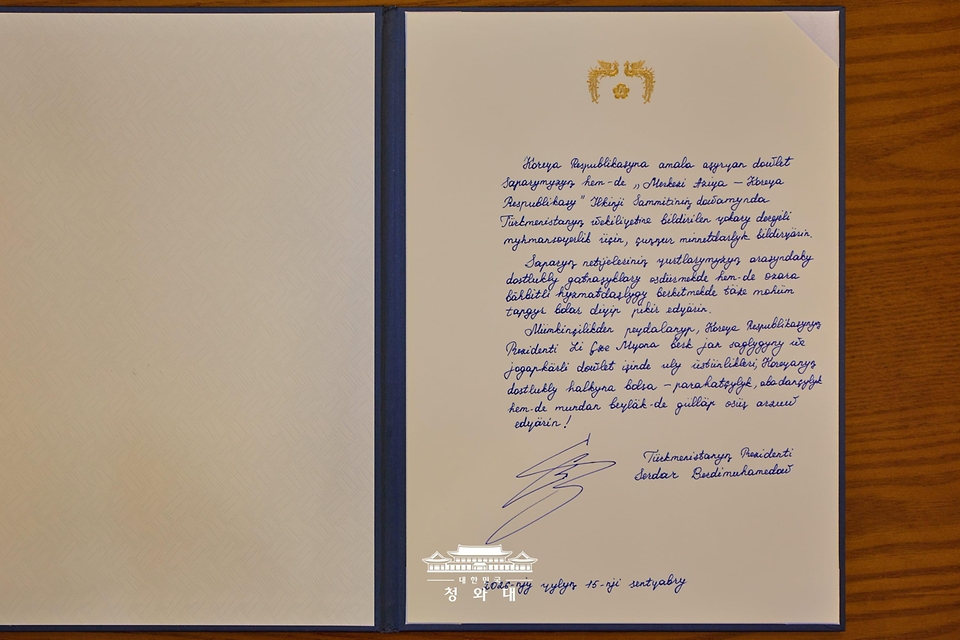 Koreýa Respublikasyna amala aşyrýan döwlet
Saparymyzyň hem-de „Merkezi Aziýa – Koreýa
Respublikasy" Ilkinji Sammitiniň dowamynda
Türkmenistanyň wekiliýetine bildirilen ýokary derejeli
myhmansöýerlik üçin, çuňňur minnetdarlyk bildirýärin.
Saparyň netijeleriniň ýurtlarymyzyň arasyndaky
dostlukly gatnaşyklary ösdürmekde hem-de özara
bähbitli hyzmatdaşlygy berkitmekde täze möhüm
tapgyr bolar diýip pikir edýärin.
Mümkinçilikden peýdalanyp, Koreýa Respublikasynyň
Prezidenti Li Çže Mýona berk jan saglygyny we
jogapkärli döwlet işinde uly üstünlikleri, Koreýanyň
dostlukly halkyna bolsa – parahatçylyk, abadançylyk
hem-de mundan beýläk-de gülläp ösüş arzuw
edýärin!
Türkmenistanyň Prezidenti
Serdar Berdimuhamedow
2026-njy ýylyň 15-nji sentýabry
대한민국
청와대